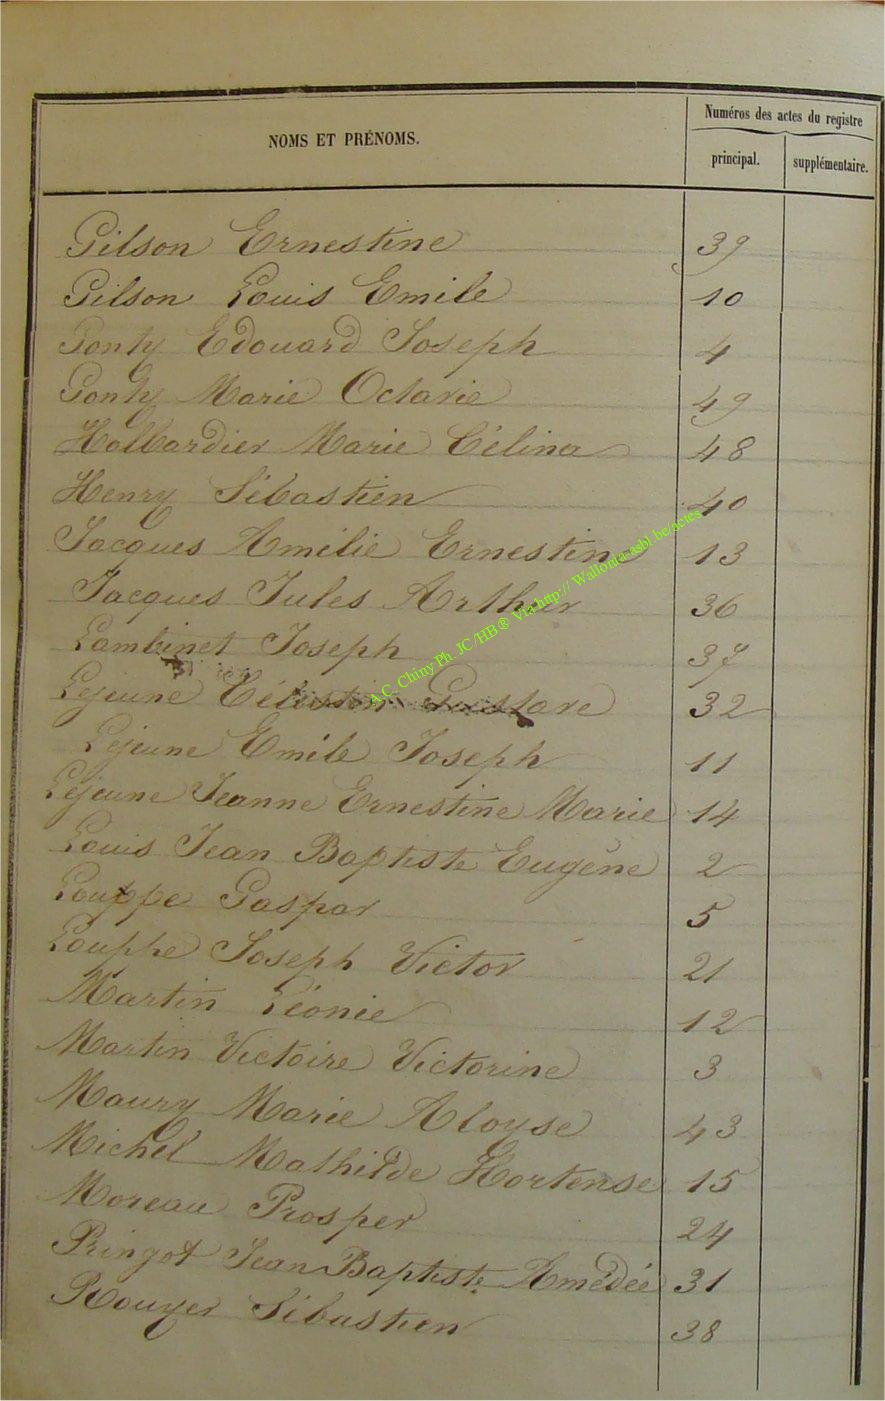 NOMS ET PRÉNOMS.
Numéros des actes du registre
principal. supplémentaire.
Gilson Ernestine 39
Gilson Louis Emile 10
Gonty Edouard Joseph 4
Gonty Marie Octavie 49
Halbardier Marie Célina 48
Henry Sébastien 40
Jacques Amélie Ernestine 13
Jacques Jules Arthur 36
Lambinet Joseph 37
Lejeune Célestin Gustave 32
Lejeune Emile Joseph 11
Lejeune Jeanne Ernestine Marie 14
Louis Jean Baptiste Eugène 2
Louppe Gaspar 5
Louphe Joseph Victor 21
Martin Léonie 12
Martin Victoire Victorine 3
Maury Marie Aloyse 43
Michel Mathilde Hortense 15
Moreau Prosper 24
Pringot Jean Baptiste Amédée 31
Rouyer Sébastien 38
A.C. Chiny Ph. JC/HB® Via http://Wallonia-asbl.be/actes